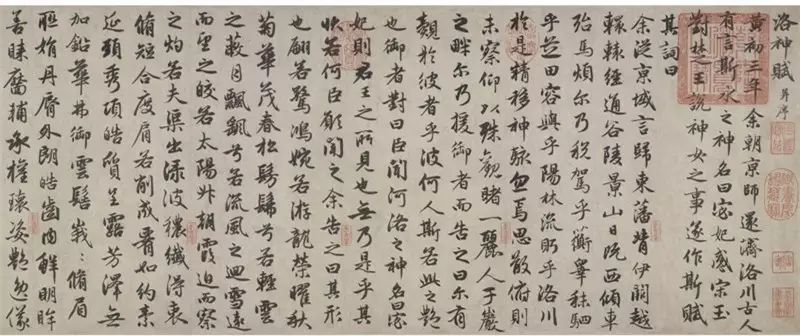 洛神賦 并序
黃初三年余朝京師還濟洛川古人
有言斯水之神名曰宓妃感宋玉
對楚王說神女之事遂作斯賦
其詞曰
余從京域言歸東藩背伊闕越
轘轅經通谷陵景山日既西傾車
殆馬煩尔乃稅駕乎蘅皋秣駟
乎芝田容與乎陽林流眄乎洛川
於是精移神駭忽焉思散俯則
未察仰以殊觀睹一麗人于巖
之畔尔乃援御者而告之曰尔有
覿於彼者乎彼何人斯若此之艷
也御者對曰臣聞河洛之神名曰宓
妃則君王之所見也無乃是乎其
狀若何臣願聞之余告之曰其形
也翩若驚鴻婉若游龍榮曜秋
菊華茂春松髣髴兮若輕雲
之蔽月飄颻兮若流風之迴雪遠
而望之皎若太陽升朝霞迫而察
之灼若夫渠出淥波穠纖得衷
脩短合度肩若削成要如約素
延頸秀項皓質呈露芳澤無
加鉛華弗御雲髻峩〻脩眉
聯娟丹脣外朗皓齒內鮮明眸
善睞靨輔承權瓌姿艷逸儀